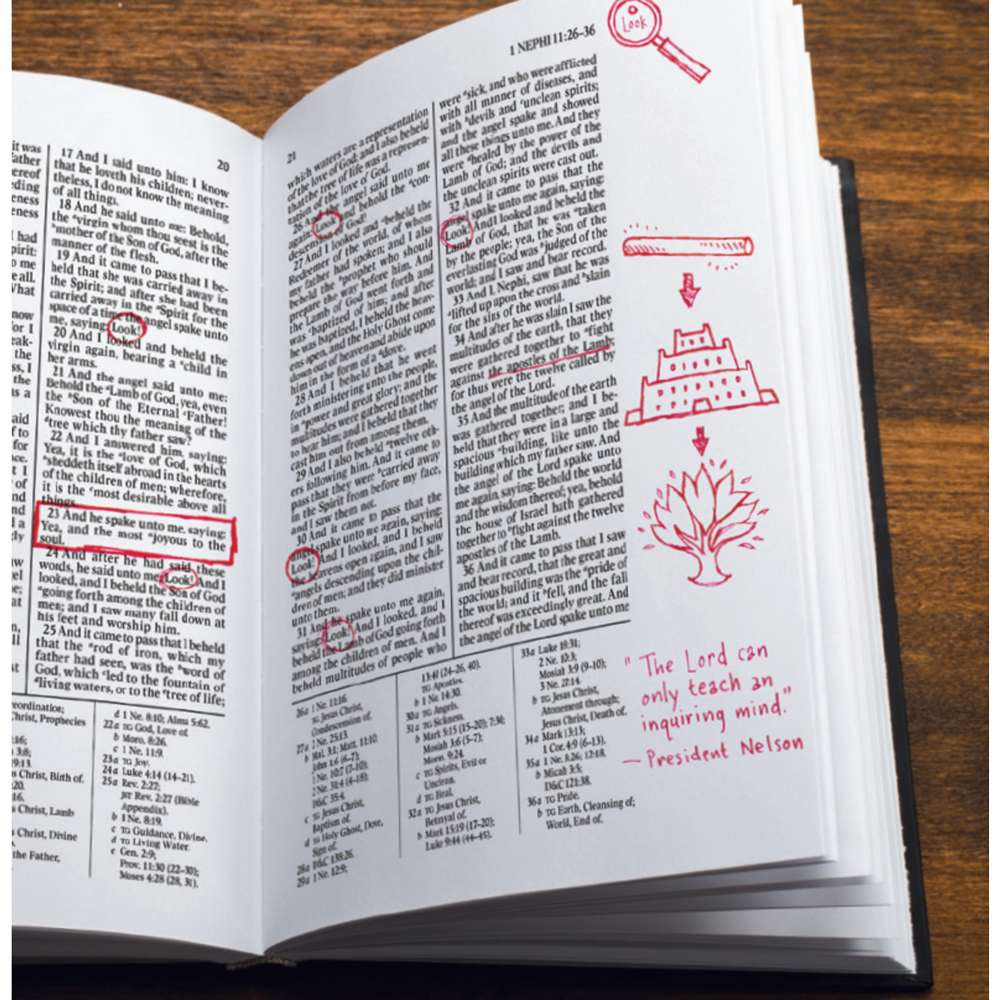 it was
father
ereof
ding
eness
eness
had
pirit:
o me
e all.
What
now
for I
eak-
the
ss, I
the
is a
said
f to
for
ce.
t I
of
nd
l a
gly
w
el
ne;
at
n,
ll
t
20
17 And I said unto him: I know
that he loveth his children; never-
theless, I do not know the meaning
of all things.
18 And he said unto me: Behold,
the avirgin whom thou seest is the
bmother of the Son of God, after the
manner of the flesh.
19 And it came to pass that I be-
held that she was carried away in
the Spirit; and after she had been
carried away in the aSpirit for the
space of a time the angel spake unto
me, saying: Look!
20 And I looked and beheld the
virgin again, bearing a achild in
her arms.
21 And the angel said unto me:
Behold the aLamb of God, yea, even
the bSon of the Eternal cFather!
Knowest thou the meaning of the
dtree which thy father saw?
22 And I answered him, saying:
Yea, it is the alove of God, which
bsheddeth itself abroad in the hearts
of the children of men; wherefore,
it is the cmost desirable above all
things.
23 And he spake unto me, saying:
Yea, and the most ajoyous to the
soul.
24 And after he had said these
words, he said unto me: Look! And I
looked, and I beheld the Son of God
agoing forth among the children of
men; and I saw many fall down at
his feet and worship him.
25 And it came to pass that I beheld
that the arod of iron, which my
father had seen, was the bword of
God, which cled to the fountain of
dliving waters, or to the etree of life;
ordination;
Christ, Prophecies
:16;
3:8;
9:13.
s Christ, Birth of.
:20.
16.
s Christ, Lamb
Christ, Divine
the Father,
d 1 Ne. 8:10; Alma 5:62.
22a TG God, Love of.
b Moro. 8:26.
c 1 Ne. 11:9.
23a TG Joy.
24a Luke 4:14 (14–21).
25a Rev. 2:27;
JST Rev. 2:27 (Bible
Appendix).
b 1 Ne. 8:19.
c TG Guidance, Divine.
d TG Living Water.
e Gen. 2:9;
Prov. 11:30 (22–30);
Moses 4:28 (28, 31).
21
1 NEPHI 11:26–36
which waters are a representation
of the love of God; and I also beheld
that the tree of life was a represen-
tation of the love of God.
26 And the angel said unto me
again: Look and behold the acon-
descension of God!
27 And I looked and abeheld the
Redeemer of the world, of whom
my father had spoken; and I also
beheld the bprophet who should
prepare the way before him. And
the Lamb of God went forth and
was cbaptized of him; and after
he was baptized, I beheld the heav-
ens open, and the Holy Ghost come
down out of heaven and abide upon
him in the form of a ddove.
28 And I beheld that he went
forth ministering unto the people,
in apower and great glory; and the
multitudes were gathered together
to hear him; and I beheld that they
cast him out from among them.
29 And I also beheld atwelve oth-
ers following him. And it came to
pass that they were bcarried away
in the Spirit from before my face,
and I saw them not.
30 And it came to pass that the
angel spake unto me again, saying:
Look! And I looked, and I beheld
the heavens open again, and I saw
aangels descending upon the chil-
dren of men; and they did minister
unto them.
31 And he spake unto me again,
saying: Look! And I looked, and I
beheld the Lamb of God going forth
among the children of men. And I
beheld multitudes of people who
were asick, and who were afflicted
with all manner of diseases, and
with bdevils and cunclean spirits;
and the angel spake and showed
all these things unto me. And they
were dhealed by the power of the
Lamb of God; and the devils and
the unclean spirits were cast out.
32 And it came to pass that the
angel spake unto me again, saying:
Look! And I looked and beheld the
Lamb of God, that he was ataken
by the people; yea, the Son of the
everlasting God was bjudged of the
world; and I saw and bear record.
33 And I, Nephi, saw that he was
alifted up upon the cross and bslain
for the sins of the world.
34 And after he was slain I saw the
multitudes of the earth, that they
were gathered together to afight
against the apostles of the Lamb;
for thus were the twelve called by
the angel of the Lord.
35 And the multitude of the earth
was gathered together; and I be-
held that they were in a large and
spacious abuilding, like unto the
building which my father saw. And
the angel of the Lord spake unto
me again, saying: Behold the world
and the wisdom thereof; yea, behold
the house of Israel hath gathered
together to bfight against the twelve
apostles of the Lamb.
36 And it came to pass that I saw
and bear record, that the great and
spacious building was the apride of
the world; and it bfell, and the fall
thereof was exceedingly great. And
the angel of the Lord spake unto me
26a 1 Ne. 11:16.
TG Jesus Christ,
Condescension of.
27a 2 Ne. 25:13.
b Mal. 3:1; Matt. 11:10;
John 1:6 (6–7);
1 Ne. 10:7 (7–10);
2 Ne. 31:4 (4–18);
D&C 35:4.
c TG Jesus Christ,
Baptism of.
d TG Holy Ghost, Dove,
Sign of.
28a D&C 138:26.
29a 1 Ne. 12:9;
13:41 (24–26, 40).
TG Apostles.
b 1 Ne. 14:30.
30a TG Angels.
31a TG Sickness.
b Mark 5:15 (15–20); 7:30;
Mosiah 3:6 (5–7);
Morm. 9:24.
c TG Spirits, Evil or
Unclean.
d TG Heal.
32a TG Jesus Christ,
Betrayal of.
b Mark 15:19 (17–20);
Luke 9:44 (44–45).
33a Luke 18:31;
2 Ne. 10:3;
Mosiah 3:9 (9–10);
3 Ne. 27:14.
b TG Jesus Christ,
Atonement through;
Jesus Christ, Death of.
34a Mark 13:13;
1 Cor. 4:9 (6–13).
35a 1 Ne. 8:26; 12:18.
b Micah 3:5;
D&C 121:38.
36a TG Pride.
b TG Earth, Cleansing of;
World, End of.
Look
"The Lord can
only teach an
inquiring mind."
— President Nelson